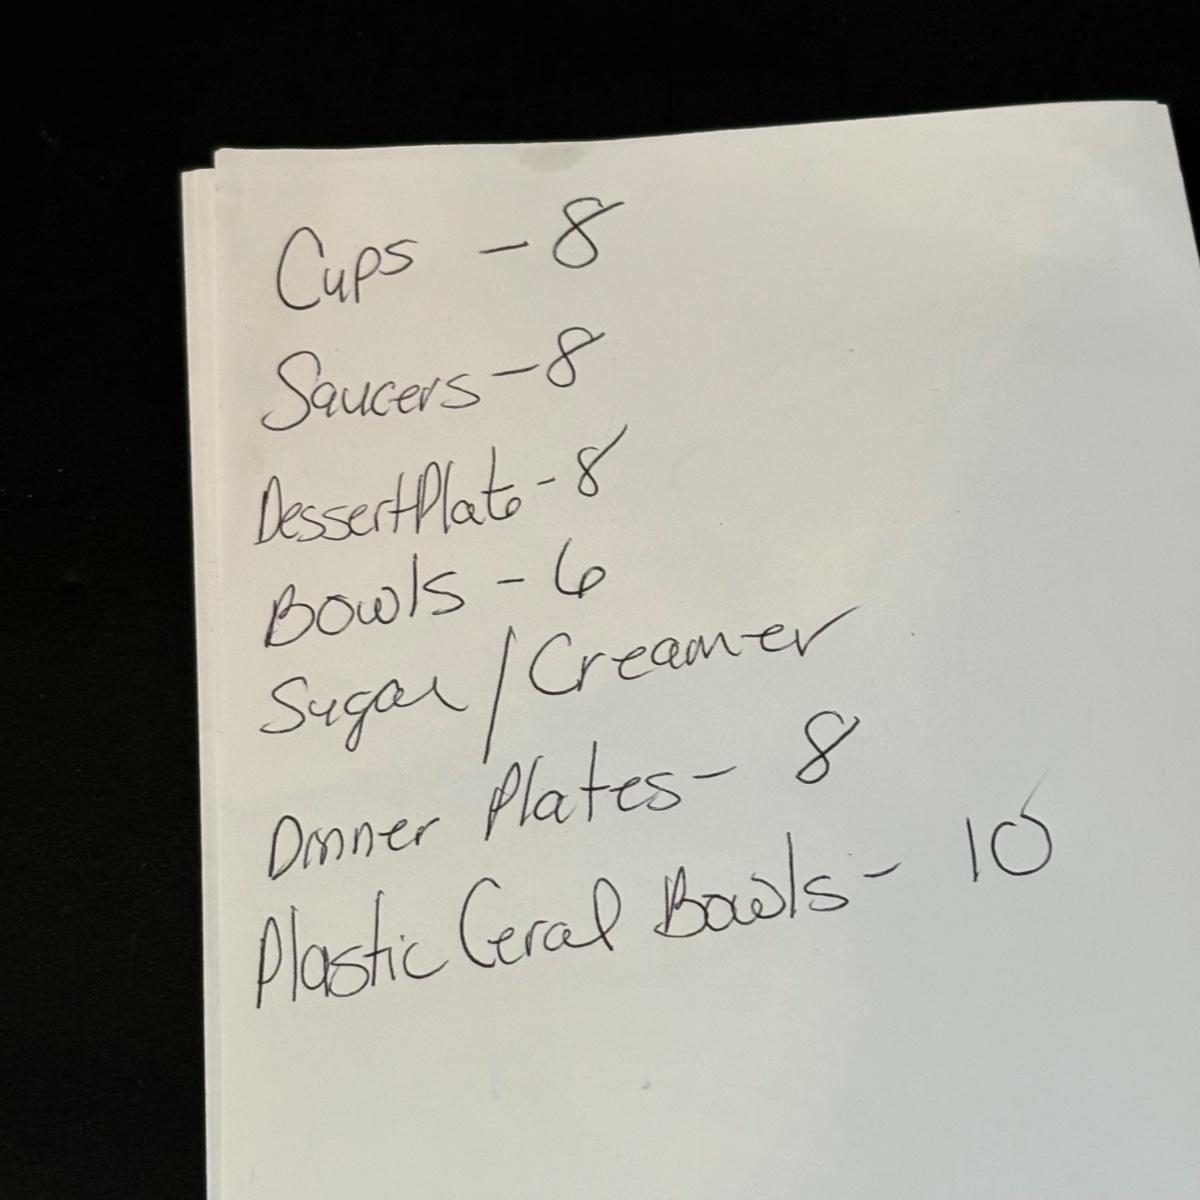 Cups - 8
Saucers - 8
Dessert Plate - 8
Bowls - 6
Sugar / Creamer
Dinner Plates - 8
Plastic Ceral Bowls - 10